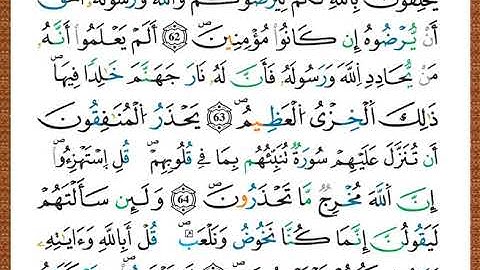 يَحْلِفُونَ بِاللَّهِ لَكُمْ لِيُرْضُوكُمْ وَاللَّهُ وَرَسُولُهُ أَحَقُّ
أَنْ يُّرْضُوهُ إِن كَانُوا۟ مُؤْمِنِينَۖ 62 أَلَمْ يَعْلَمُوٓا۟ أَنَّهُۥ
مَنْ يُّحَادِدِ اِ۬للَّهَ وَرَسُولَهُۥ فَأَنَّ لَهُۥ نَارَ جَهَنَّمَ خَٰلِداٗ فِيهَاۖ
ذَٰلِكَ اَ۬لْخِزْىُ اُ۬لْعَظِيمُۖ 63 يَحْذَرُ اُ۬لْمُنَٰفِقُونَ
أَن تُنَزَّلَ عَلَيْهِمْ سُورَةٞ تُنَبِّئُهُم بِمَا فِى قُلُوبِهِمْۖ قُلِ اِ۪سْتَهْزِءُوٓا۟
إِنَّ اَ۬للَّهَ مُخْرِجٞ مَّا تَحْذَرُونَۖ 64 وَلَئِن سَأَلْتَهُمْ
لَيَقُولُنَّ إِنَّمَا كُنَّا نَخُوضُ وَنَلْعَبُۖ قُلْ أَبِاللَّهِ وَءَايَٰتِهِۦ